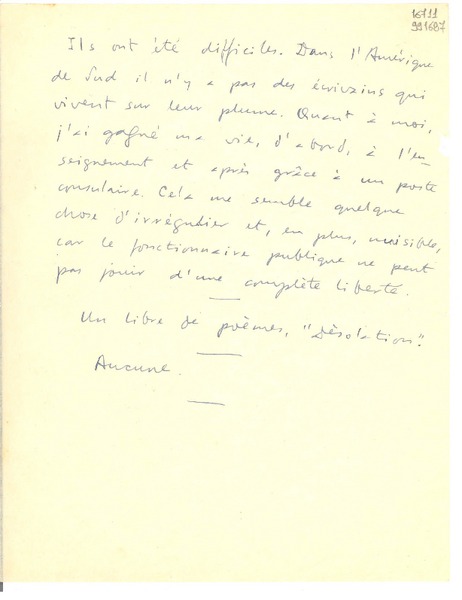 16111
991687
Ils ont été difficiles. Dans l'Amérique
de Sud il n'y a pas des écrivains qui
vivent sur leur plume. Quant à moi,
j'ai gagné ma vie, d'abord, à l'en-
seignement et après grâce à un poste
consulaire. Cela me semble quelque
chose d'irrégulier et, en plus, nuisible,
car le fonctionnaire publique ne peut
pas jouir d'une complète liberté.
Un libre de poèmes, "Désolation".
Aucune.